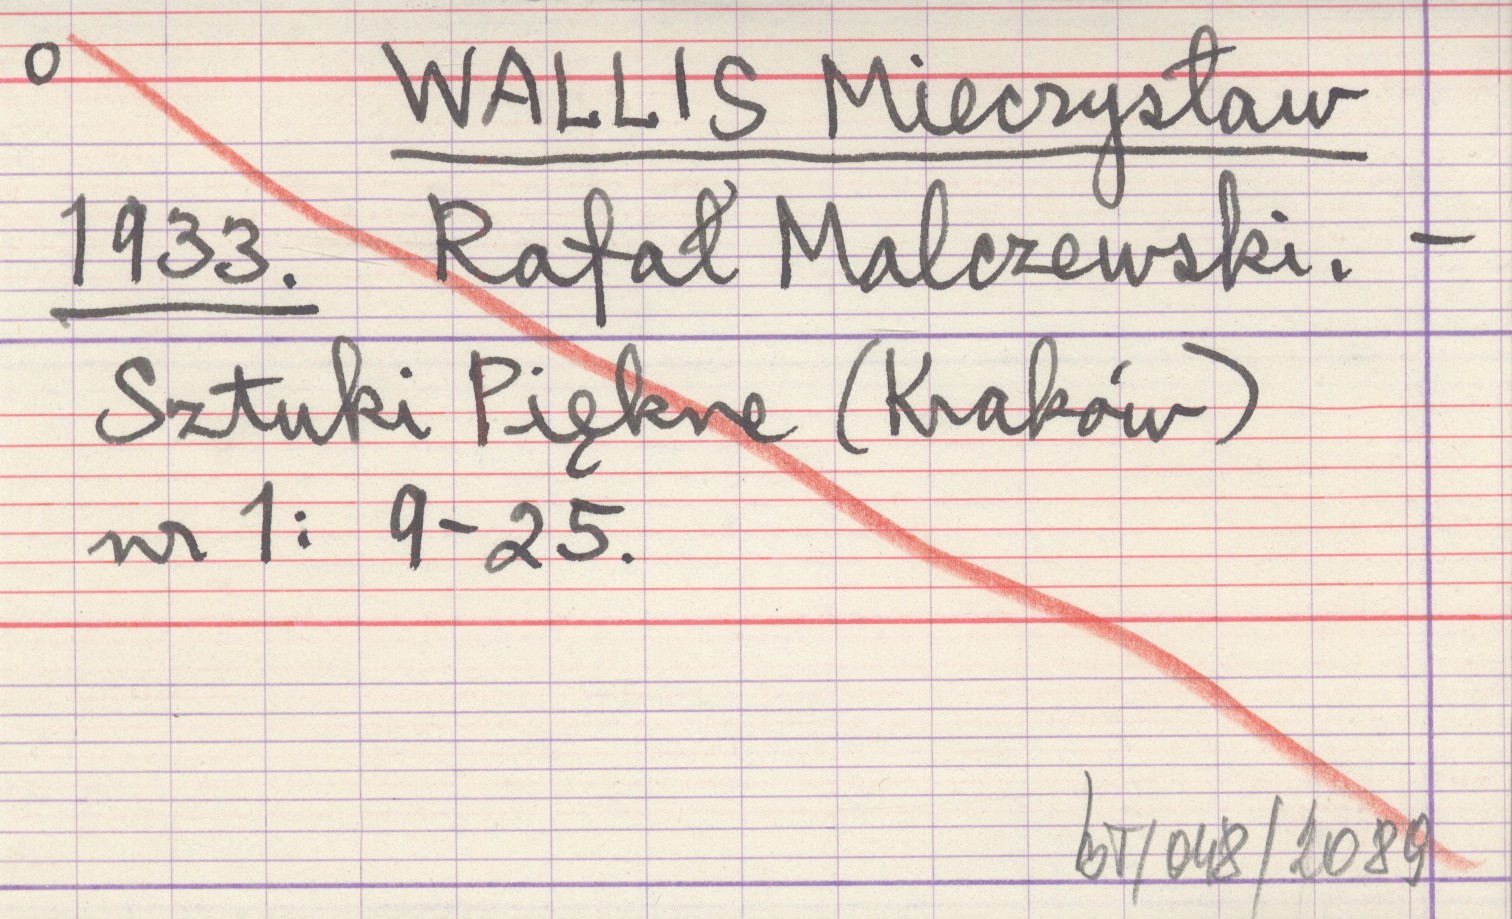 o WALLIS Mieczysław
1933. Rafał Malczewski. –
Sztuki Piękne (Kraków)
nr 1: 9-25.
bT/048/2089